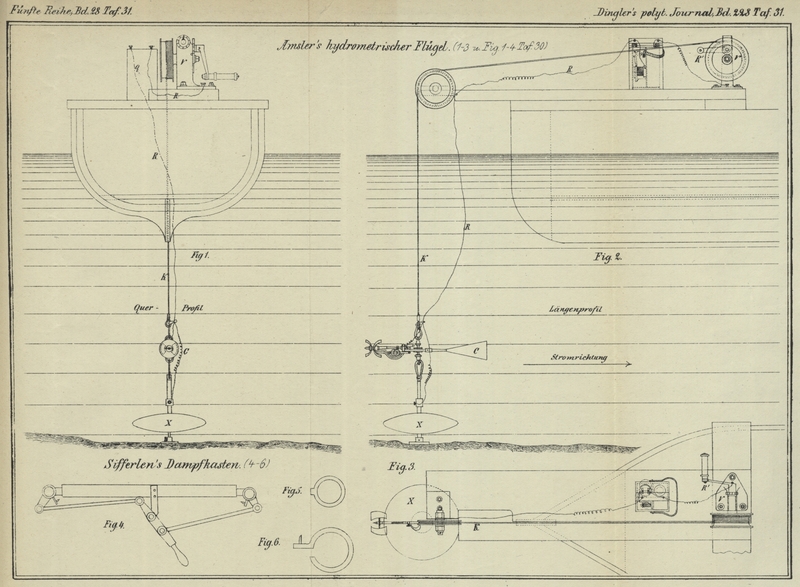 Fünfte Reihe, Bd. 28 Taf. 31.
Dingler's polyt. Journal, Bd. 228 Taf. 31.
Amsler's hydrometrischer Flügel. (1-3 u. Fig 1-4 Taf 30)
R
R
R
R
Fig 1.
K
Quer-Profil
C
X
K
R
Fig. 2.
Längenprofil
C
Stromrichtung
X
Sifferlen's Dampfkasten. (4-6)
Fig. 4.
Fig 5.
Fig. 6.
Fig. 3.
X
K